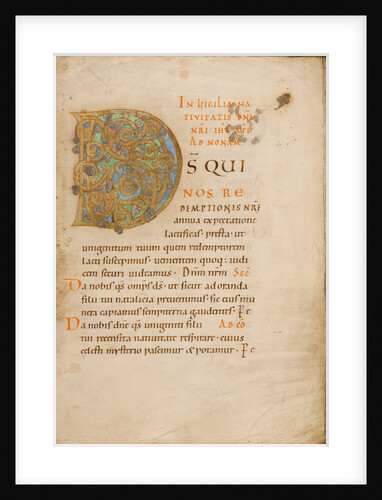 IN UIGILIA NA
TIUITATIS DNI
NRI IHU XPI
AD NONAM
D S QUI
NOS RE
DEMPTIONIS NRE
annua expectatione
laetificas· presta· ut
unigenitum tuum quem redemptorem
laeti suscepimus· uenientem quoq· iudi
cem securi uideamus· Dnm nrm Sec
Da nobis qs omps ds· ut sicut adoranda
filii tui natalicia preuenimus· sic eius mu
nera capiamus sempiterna gaudentes· Pc
Da nobis dne qs unigeniti filii AD CO
tui recensita natiuitate respirare· cuius
celesti mysterio pascimur & potamur· P c